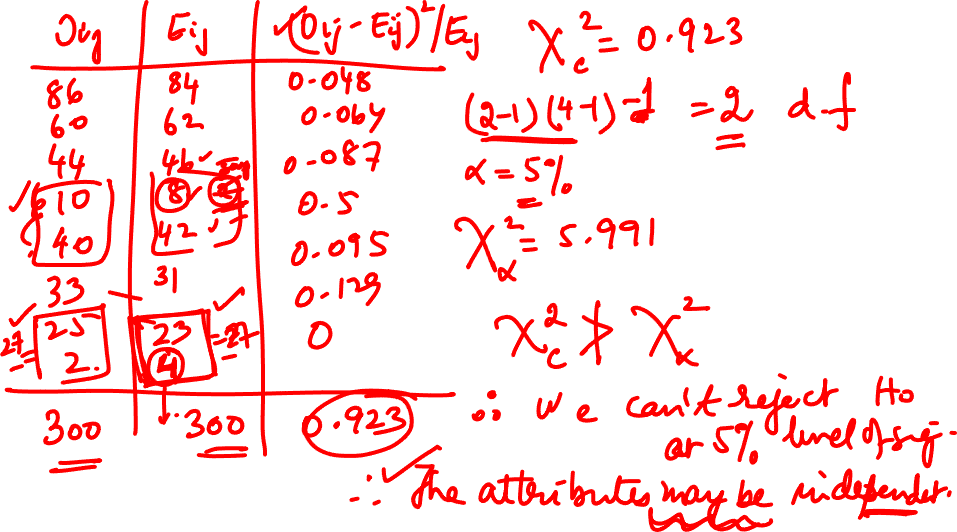 Oij Eij (Oij - Eij)²/Eij
86 84 0.048
60 62 0.064
44 46 0.087
10 8 0.5
40 42 0.095
33 31 0.129
25 23 0
27 = 2. 4 = 27
300 300 0.923
χ²c = 0.923
(2-1)(4-1)-1 = 2 d.f
α = 5%
χ²α = 5.991
χ²c ≯ χ²α
∴ We can't reject Ho
at 5% level of sig.
∴ The attributes may be independent.